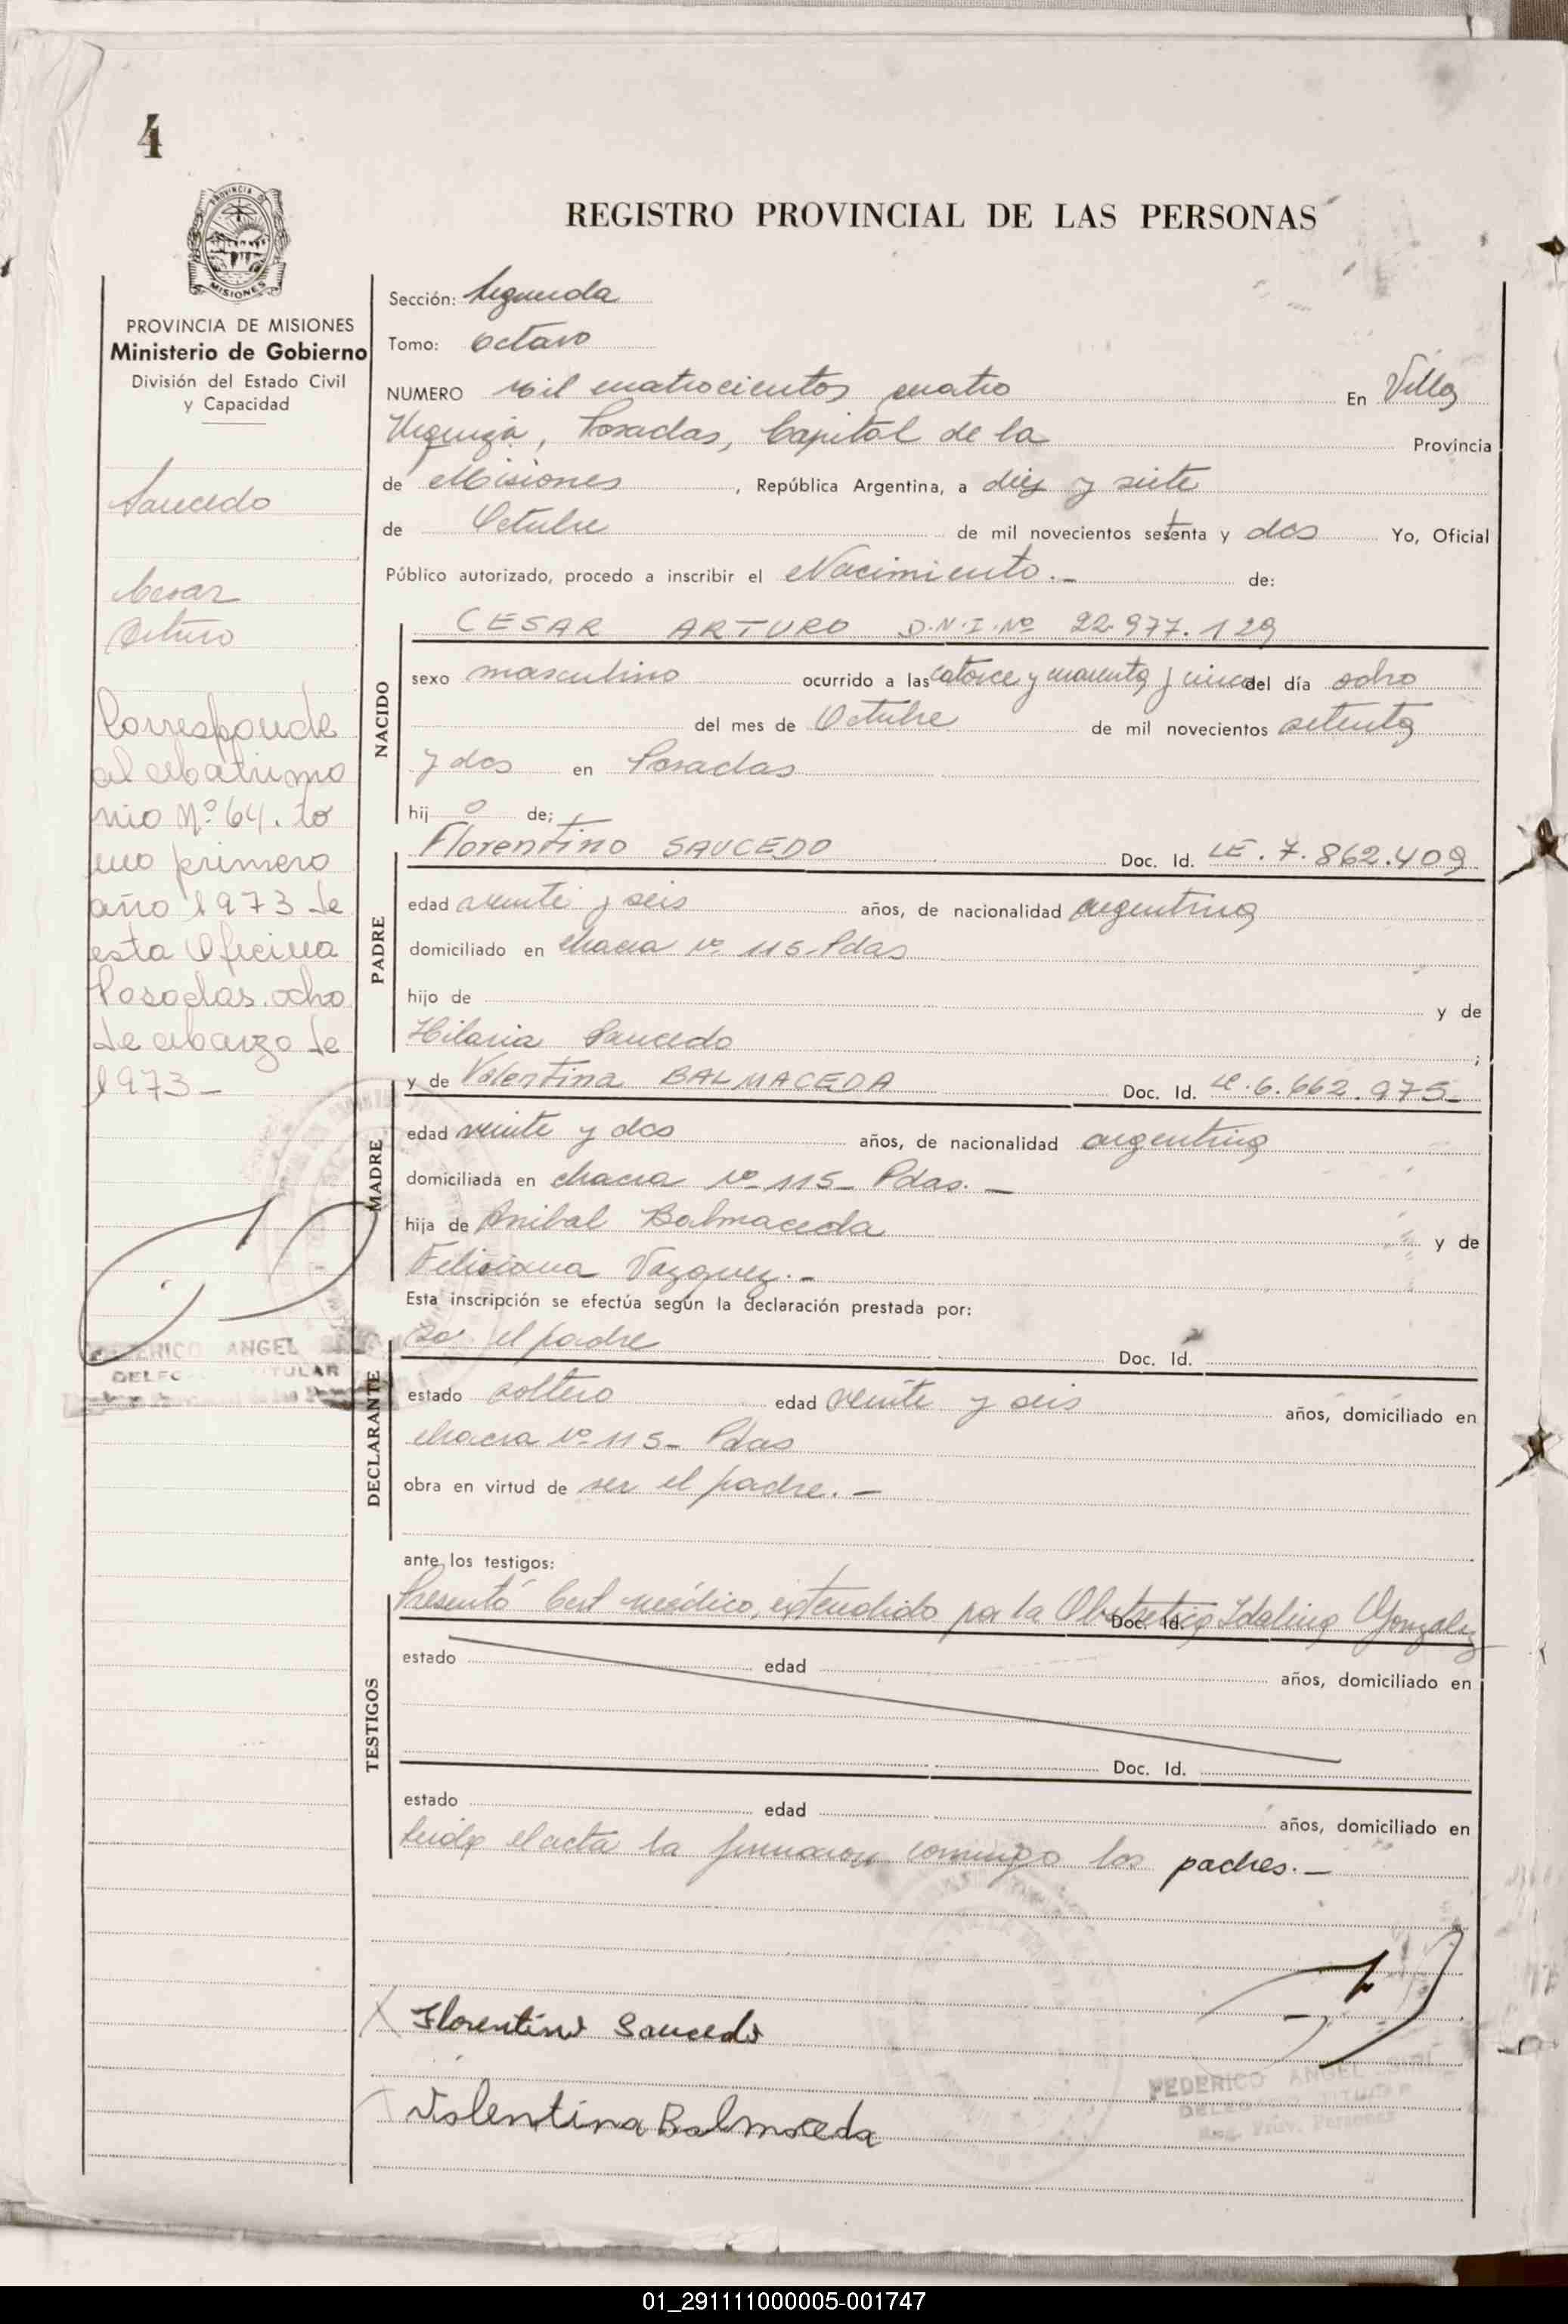 4
PROVINCIA DE
MISIONES
REGISTRO PROVINCIAL DE LAS PERSONAS
PROVINCIA DE MISIONES
Ministerio de Gobierno
División del Estado Civil
y Capacidad
Saucedo
Cesar
Arturo
Corresponde
al Matrimo
nio Nº 64. to
mo primero
año 1973 de
esta Oficina
Posadas. ocho
de Marzo de
1973-
ANGEL
Sección: Segunda
Tomo: Octavo
NUMERO mil cuatrocientos cuatro En Villa
Urquiza, Posadas, Capital de la Provincia
de Misiones, República Argentina, a diez y siete
de Octubre de mil novecientos setenta y dos Yo, Oficial
Público autorizado, procedo a inscribir el Nacimiento.- de:
NACIDO
CESAR ARTURO D.N.I. Nº 22.977.129
sexo masculino ocurrido a las catorce y cuarenta y cinco del día ocho
del mes de Octubre de mil novecientos setenta
y dos en Posadas
hijo de;
PADRE
Florentino SAUCEDO Doc. Id. LE. 7.862.409
edad veinte y seis años, de nacionalidad argentina
domiciliado en chacra Nº 115-Pdas
hijo de y de
Hilaria Saucedo ;
MADRE
y de Valentina BALMACEDA Doc. Id. LC.6.662.975-
edad veinte y dos años, de nacionalidad argentina
domiciliada en chacra Nº 115- Pdas.-
hija de Anibal Balmaceda y de
Feliciana Vazquez.-
Esta inscripción se efectúa según la declaración prestada por:
DECLARANTE
el padre Doc. Id.
estado soltero edad veinte y seis años, domiciliado en
chacra Nº 115- Pdas
obra en virtud de ser el padre.-
ante los testigos:
TESTIGOS
Presentó Cert médico, extendido por la Obstetrica Idalina Gonzalez
Doc. Id.
estado edad años, domiciliado en
Doc. Id.
estado edad años, domiciliado en
Leida el acta la firmaron conmigo los padres.-
Florentino Saucedo
FEDERICO ANGEL
Valentina Balmaceda
01_291111000005-001747